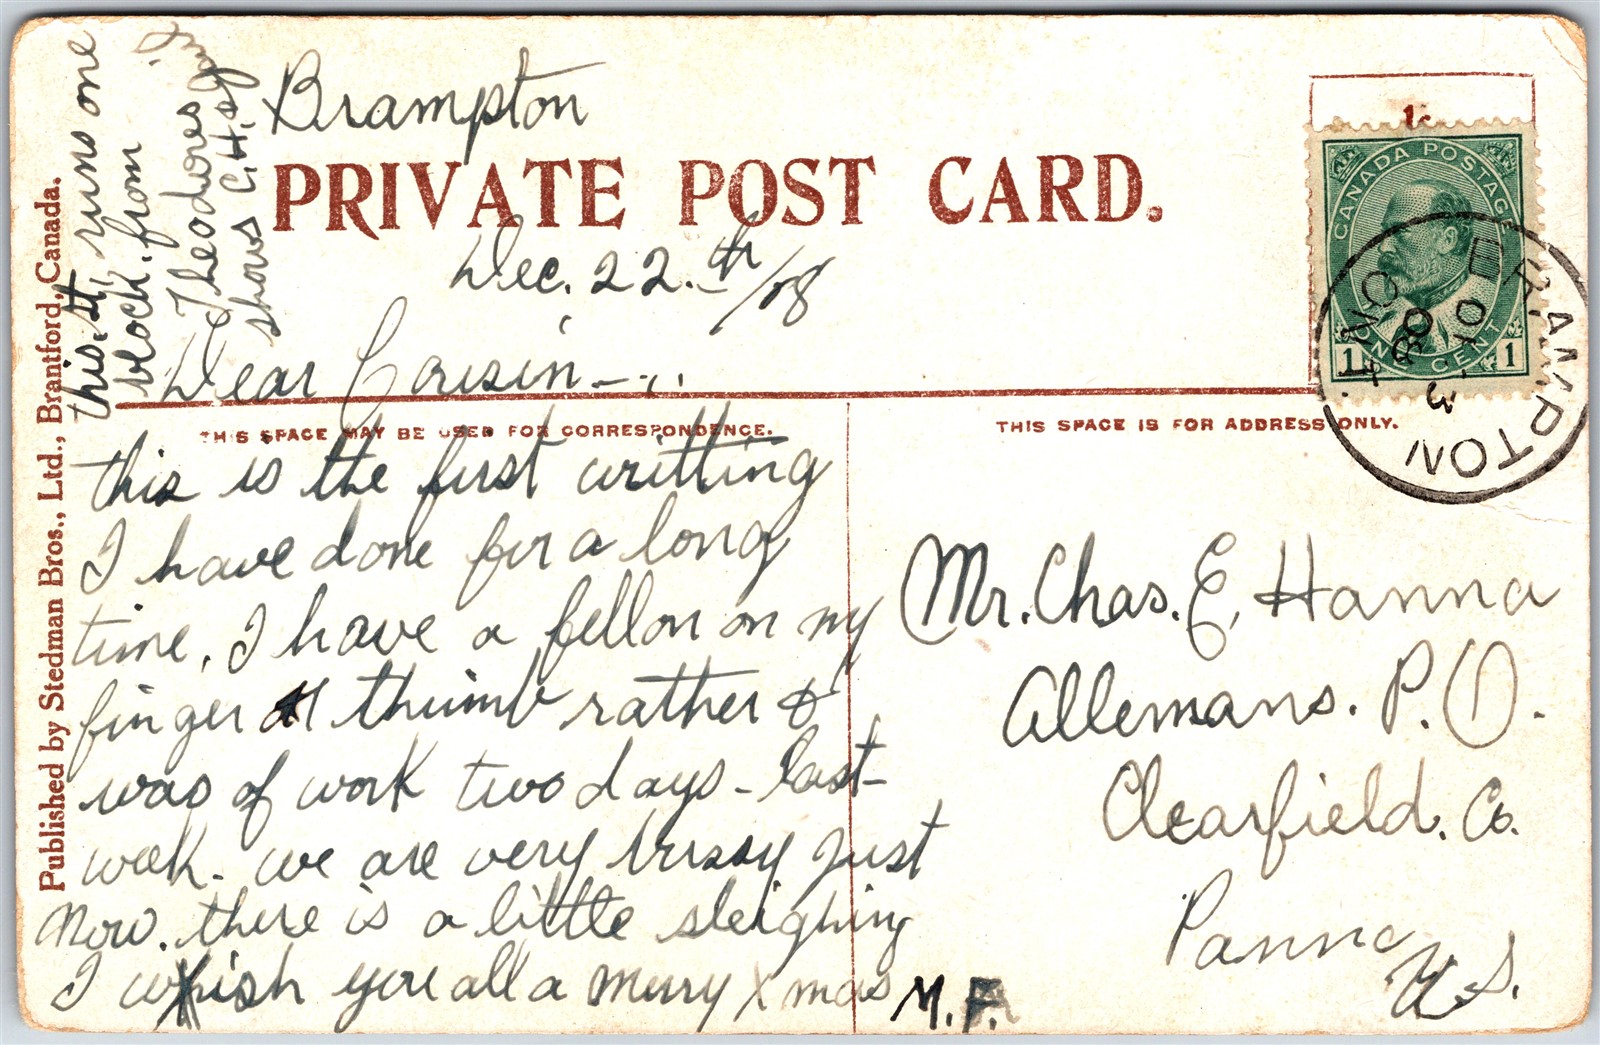 this. st, runs one
block. from
Theodores
shows C.H. of
Brampton
PRIVATE POST CARD.
Dec. 22.th/08
Dear Cousin
THIS SPACE MAY BE USED FOR CORRESPONDENCE.
this is the first writting
I have done for a long
time. I have a fellon on my
finger thumb rather &
was of work two days - last
week. we are very bussy just
now. there is a little sleighing
I wish you all a merry Xmas M.F.
Published by Stedman Bros., Ltd., Brantford, Canada.
1c
CANADA POSTAGE
1 ONE CENT 1
BRAMPTON
ONT
08
THIS SPACE IS FOR ADDRESS ONLY.
Mr. Chas. E. Hanna
Allemans. P.O.
Clearfield. Co.
Panna
U.S.